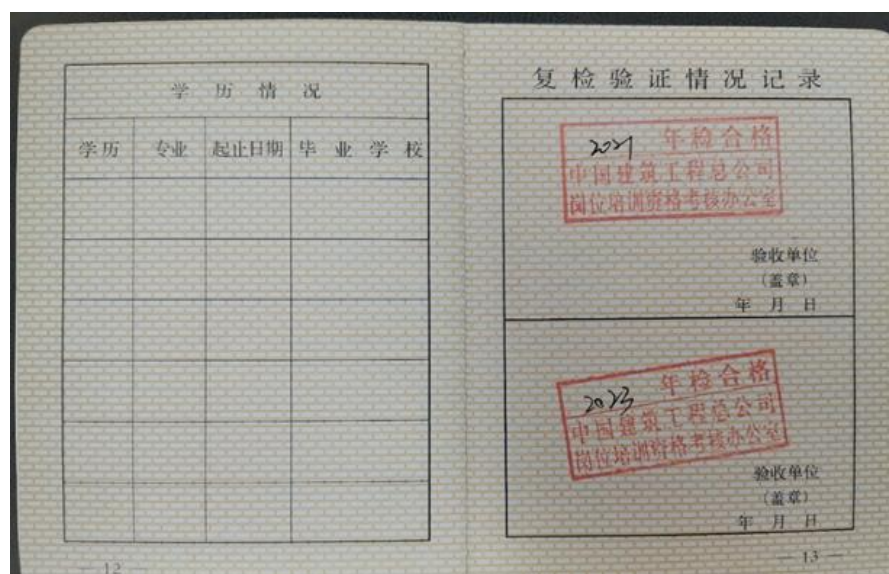 学历情况
学历 专业 起止日期 毕业学校
— 12 —
复检验证情况记录
2021 年检合格
中国建筑工程总公司
岗位培训资格考核办公室
验收单位
(盖章)
年 月 日
2023 年检合格
中国建筑工程总公司
岗位培训资格考核办公室
验收单位
(盖章)
年 月 日
— 13 —